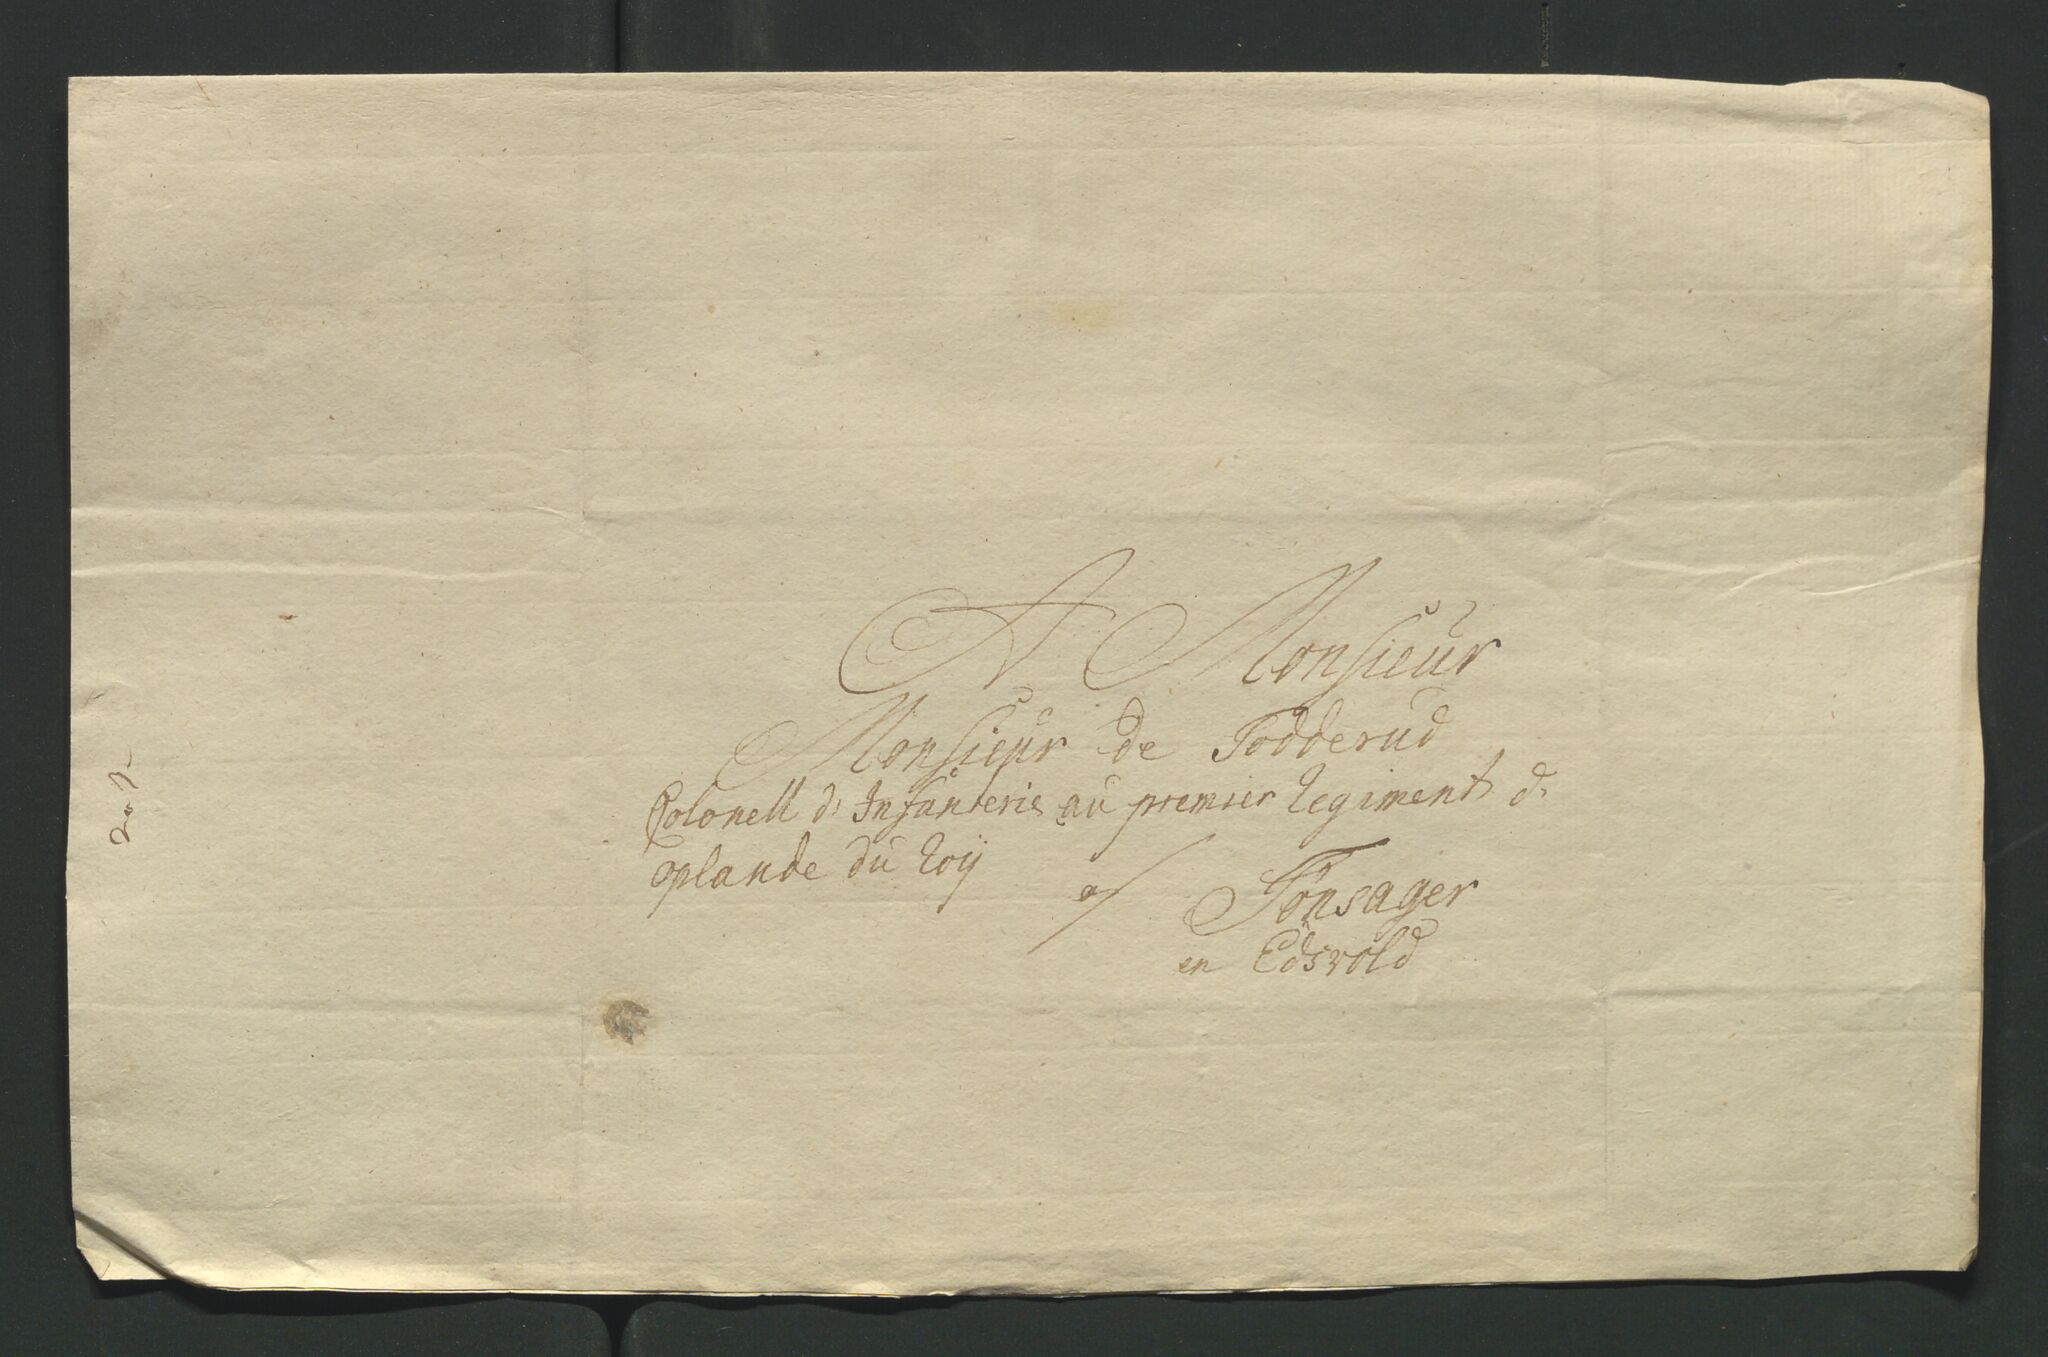 A Monsieur
Monsieur de Todderud
Colonell d'Infanterie au premier Regiment d'
oplande du Roÿ
a/ Tönsager
en Edsvold